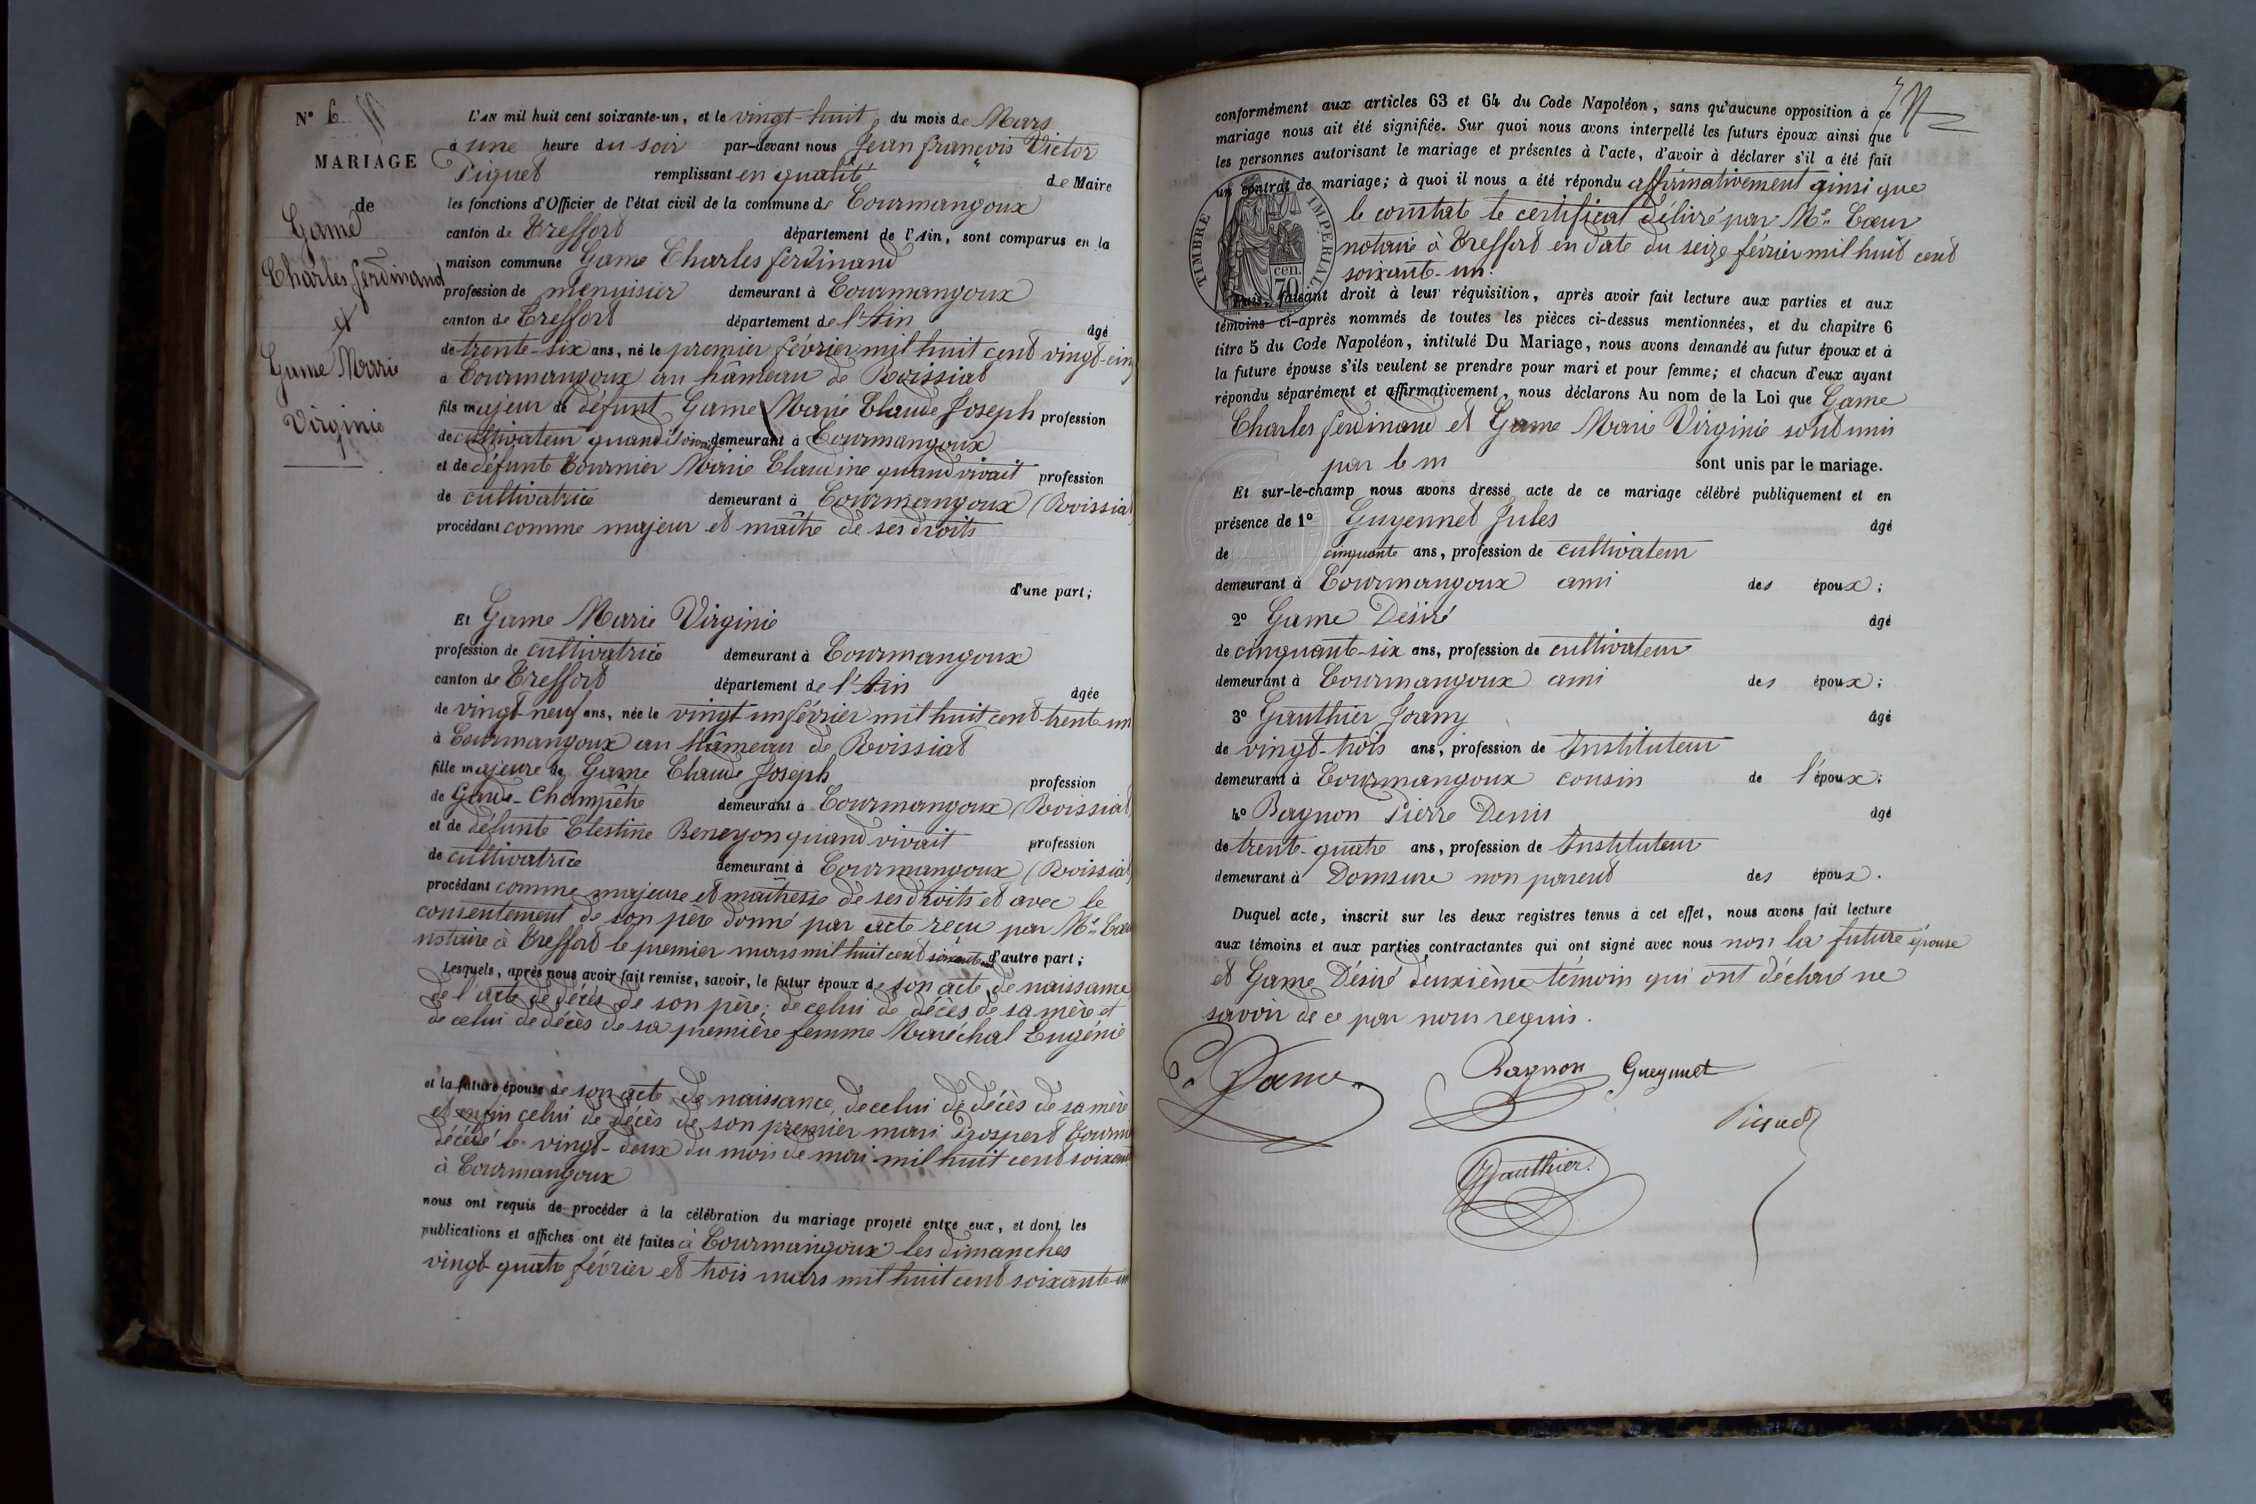 N° 6
MARIAGE
de
Game
Charles ferdinand
et
Game Marie
Virginie
L'AN mil huit cent soixante-un, et le vingt-huit du mois de Mars
à une heure du soir par-devant nous Jean françois Victor
Piquet remplissant en qualité de Maire
les fonctions d'Officier de l'état civil de la commune de Courmangoux
canton de Treffort département de l'Ain, sont comparus en la
maison commune Game Charles ferdinand
profession de menuisier demeurant à Courmangoux
canton de Treffort département de l'Ain âgé
de trente-six ans, né le premier février mil huit cent vingt-cinq
à Courmangoux au hâmeau de Roissiat
fils majeur de défunt Game Marie Claude Joseph profession
de cultivateur quand vivait demeurant à Courmangoux
et de défunte Tournier Marie Claudine quand vivait profession
de cultivatrice demeurant à Courmangoux (Roissiat
procédant comme majeur et maître de ses droits
d'une part;
Et Game Marie Virginie
profession de cultivatrice demeurant à Courmangoux
canton de Treffort département de l'Ain âgée
de vingt-neuf ans, née le vingt un février mil huit cent trente-un
à Courmangoux au hâmeau de Roissiat
fille majeure de Game Claude Joseph profession
de Garde-Champêtre demeurant à Courmangoux (Roissiat
et de défunte Célestine Beneyon quand vivait profession
de cultivatrice demeurant à Courmangoux (Roissiat
procédant comme majeure et maîtresse de ses droits et avec le
consentement de son père donné par acte reçu par Me Cœur
notaire à Treffort le premier mars mil huit cent soixante un d'autre part;
Lesquels, après nous avoir fait remise, savoir, le futur époux de son acte de naissance
de l'acte de décès de son père; de celui de décès de sa mère et
de celui de décès de sa première femme Maréchal Eugénie
et la future épouse de son acte de naissance, de celui de décès de sa mère
et enfin celui de décès de son premier mari Prospert
décédé le vingt-deux du mois de mai mil huit cent soixante
à Courmangoux
nous ont requis de procéder à la célébration du mariage projeté entre eux, et dont les
publications et affiches ont été faites à Courmangoux les dimanches
vingt-quatre février et trois mars mil huit cent soixante-un
conformément aux articles 63 et 64 du Code Napoléon, sans qu'aucune opposition à ce
mariage nous ait été signifiée. Sur quoi nous avons interpellé les futurs époux ainsi que
les personnes autorisant le mariage et présentes à l'acte, d'avoir à déclarer s'il a été fait
un contrat de mariage; à quoi il nous a été répondu affirmativement ainsi que
le constate le certificat délivré par Me Cœur
notaire à Treffort en date du seize février mil huit cent
soixante-un.
TIMBRE IMPERIAL
70 cen.
Puis, faisant droit à leur réquisition, après avoir fait lecture aux parties et aux
témoins ci-après nommés de toutes les pièces ci-dessus mentionnées, et du chapitre 6
titre 5 du Code Napoléon, intitulé Du Mariage, nous avons demandé au futur époux et à
la future épouse s'ils veulent se prendre pour mari et pour femme; et chacun d'eux ayant
répondu séparément et affirmativement, nous déclarons Au nom de la Loi que Game
Charles ferdinand et Game Marie Virginie sont unis
par le m sont unis par le mariage.
Et sur-le-champ nous avons dressé acte de ce mariage célébré publiquement et en
présence de 1° Guyennet Jules âgé
de cinquante ans, profession de cultivateur
demeurant à Courmangoux ami des époux;
2° Game Désiré âgé
de cinquante-six ans, profession de cultivateur
demeurant à Courmangoux ami des époux;
3° Gauthier Joany âgé
de vingt-trois ans, profession de Instituteur
demeurant à Courmangoux cousin de l'époux;
4° Bagnon Pierre Denis âgé
de trente-quatre ans, profession de Instituteur
demeurant à Domsure non parent des époux.
Duquel acte, inscrit sur les deux registres tenus à cet effet, nous avons fait lecture
aux témoins et aux parties contractantes qui ont signé avec nous non la future épouse
et Game Désiré deuxième témoin qui ont déclaré ne
savoir de ce par nous requis.
Game
Bagnon Gueynnet
Piquet
Gauthier